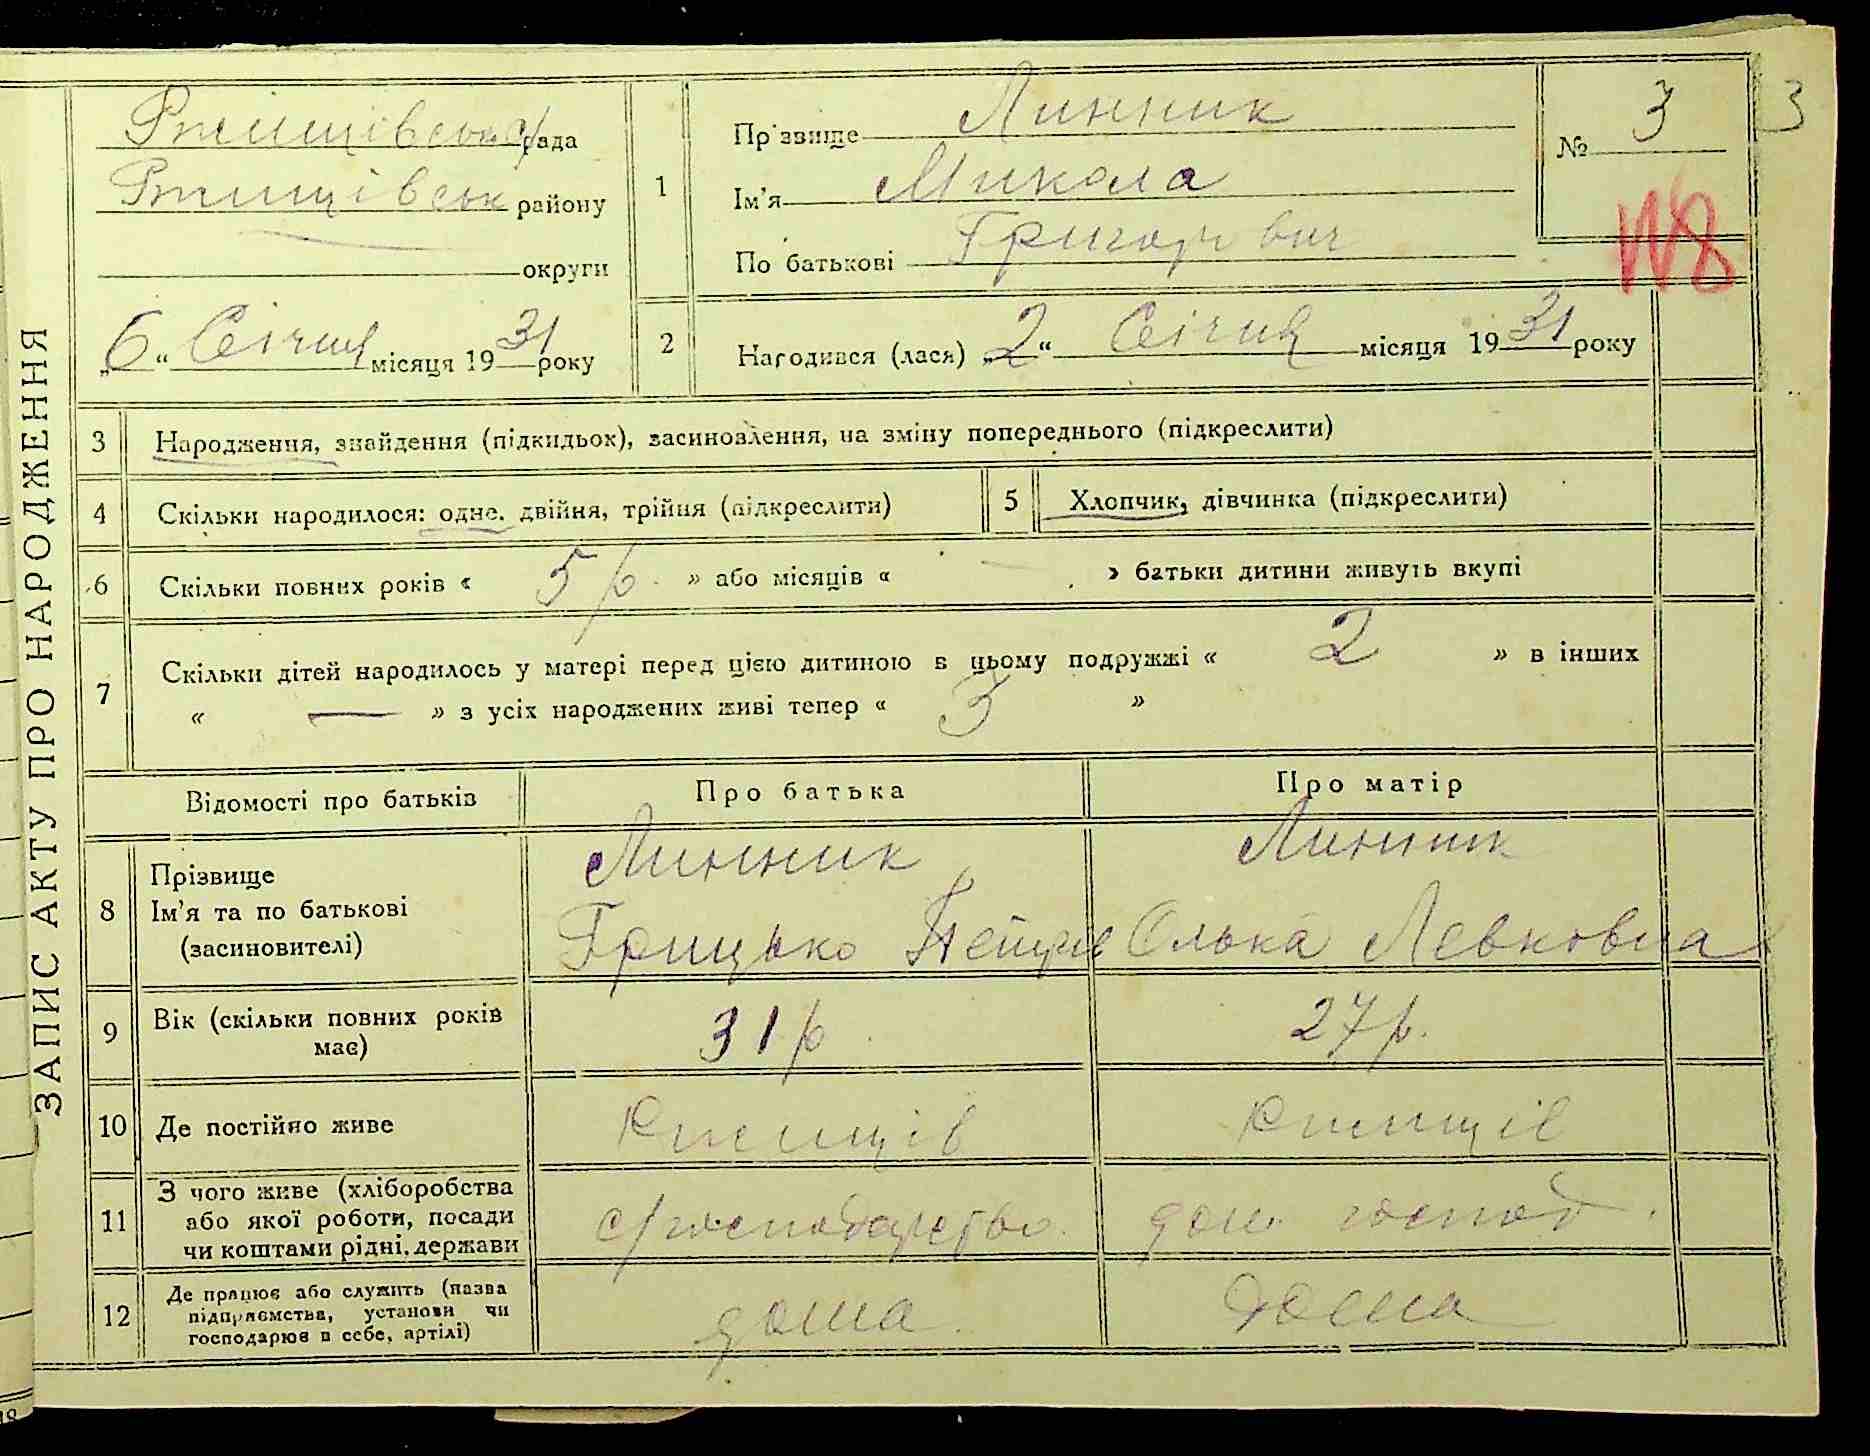 ЗАПИС АКТУ ПРО НАРОДЖЕННЯ
Ржищівська с/рада
Ржищівськ району
округи
„6“ Січня місяця 1931 року
1
Прізвище Линник
Ім'я Микола
По батькові Григорович
№ 3
3
№8
2
Народився (лася) „2“ Січня місяця 1931 року
3 Народження, знайдення (підкидьок), засиновлення, на зміну попереднього (підкреслити)
4 Скільки народилося: одне, двійня, трійня (підкреслити)
5 Хлопчик, дівчинка (підкреслити)
6 Скільки повних років « 5 р. » або місяців « — » батьки дитини живуть вкупі
7 Скільки дітей народилось у матері перед цією дитиною в цьому подружжі « 2 » в інших
« — » з усіх народжених живі тепер « 3 »
Відомості про батьків Про батька Про матір
8 Прізвище
Ім'я та по батькові
(засиновителі)
Линник
Грицько Петров
Линник
Олька Левковна
9 Вік (скільки повних років
має)
31 р
27 р.
10 Де постійно живе
Ржищів
Ржищів
11 З чого живе (хліборобства
або якої роботи, посади
чи коштами рідні, держави
с/господарство.
дом. господ.
12 Де працює або служить (назва
підприємства, установи чи
господарює в себе, артілі)
дома
дома